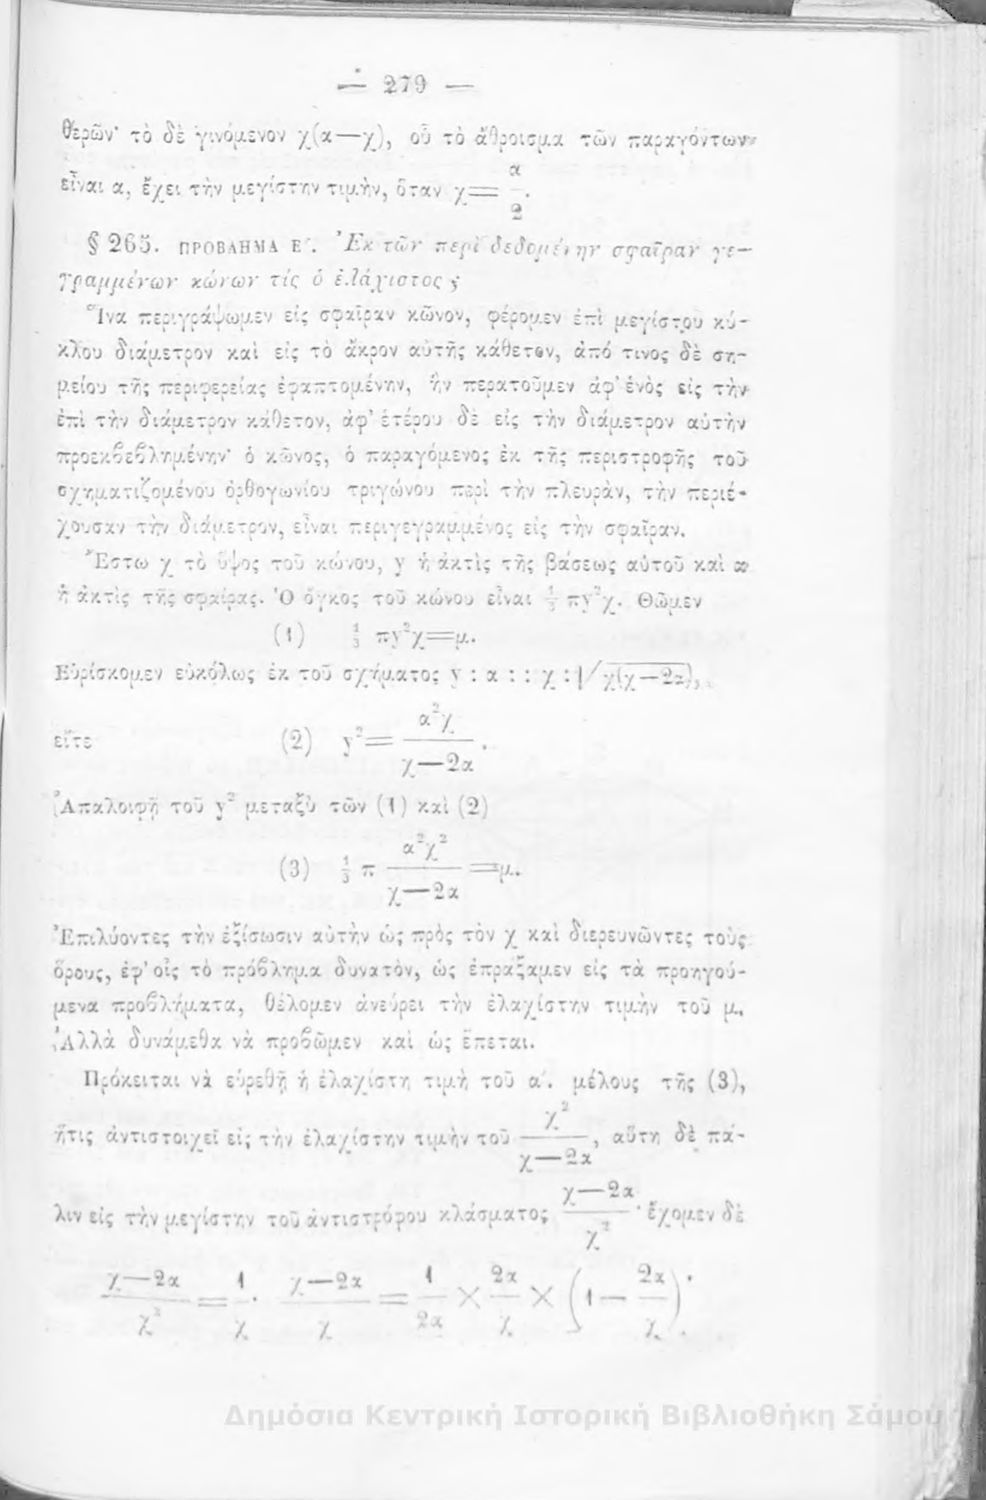 — 279 —
θερῶν· τὸ δὲ γινόμενον χ(α—χ), οὗ τὸ ἄθροισμα τῶν παραγόντων
εἶναι α, ἔχει τὴν μεγίστην τιμὴν, ὅταν χ= α/2.
§ 265. ΠΡΟΒΛΗΜΑ Ε΄. Ἐκ τῶν περὶ δεδομένην σφαῖραν γε-
γραμμένων κώνων τίς ὁ ἐλάχιστος ;
Ἵνα περιγράψωμεν εἰς σφαῖραν κῶνον, φέρομεν ἐπὶ μεγίστου κύ-
κλου διάμετρον καὶ εἰς τὸ ἄκρον αὐτῆς κάθετον, ἀπό τινος δὲ ση-
μείου τῆς περιφερείας ἐφαπτομένην, ἣν περατοῦμεν ἀφ' ἑνὸς εἰς τὴν
ἐπὶ τὴν διάμετρον κάθετον, ἀφ' ἑτέρου δὲ εἰς τὴν διάμετρον αὐτὴν
προεκβεβλημένην· ὁ κῶνος, ὁ παραγόμενος ἐκ τῆς περιστροφῆς τοῦ
σχηματιζομένου ὀρθογωνίου τριγώνου περὶ τὴν πλευρὰν, τὴν περιέ-
χουσαν τὴν διάμετρον, εἶναι περιγεγραμμένος εἰς τὴν σφαῖραν.
Ἔστω χ τὸ ὕψος τοῦ κώνου, y ἡ ἀκτὶς τῆς βάσεως αὐτοῦ καὶ α
ἡ ἀκτὶς τῆς σφαίρας. Ὁ ὄγκος τοῦ κώνου εἶναι ⅓ πy²χ. Θῶμεν
(1) ⅓ πy²χ=μ.
Εὑρίσκομεν εὐκόλως ἐκ τοῦ σχήματος y : α : : χ : √χ(χ—2α),
εἴτε (2) y²= α²χ/χ—2α.
Ἀπαλοιφῇ τοῦ y² μεταξὺ τῶν (1) καὶ (2)
(3) ⅓ π α²χ²/χ—2α =μ.
Ἐπιλύοντες τὴν ἐξίσωσιν αὐτὴν ὡς πρὸς τὸν χ καὶ διερευνῶντες τοὺς
ὅρους, ἐφ' οἷς τὸ πρόβλημα δυνατὸν, ὡς ἐπράξαμεν εἰς τὰ προηγού-
μενα προβλήματα, θέλομεν ἀνεύρει τὴν ἐλαχίστην τιμὴν τοῦ μ.
Ἀλλὰ δυνάμεθα νὰ προβῶμεν καὶ ὡς ἕπεται.
Πρόκειται νὰ εὑρεθῇ ἡ ἐλαχίστη τιμὴ τοῦ α΄. μέλους τῆς (3),
ἥτις ἀντιστοιχεῖ εἰς τὴν ἐλαχίστην τιμὴν τοῦ χ²/χ—2α, αὕτη δὲ πά-
λιν εἰς τὴν μεγίστην τοῦ ἀντιστρόφου κλάσματος χ—2α/χ² · ἔχομεν δὲ
χ—2α/χ² = 1/χ · χ—2α/χ = 1/2α × 2α/χ × (1— 2α/χ)·
Δημόσια Κεντρική Ιστορική Βιβλιοθήκη Σάμου